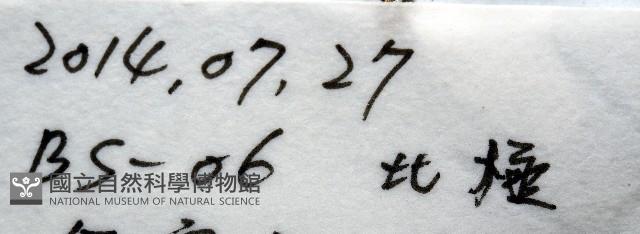 2014,07,27
BS-06 北極
國立自然科學博物館
NATIONAL MUSEUM OF NATURAL SCIENCE